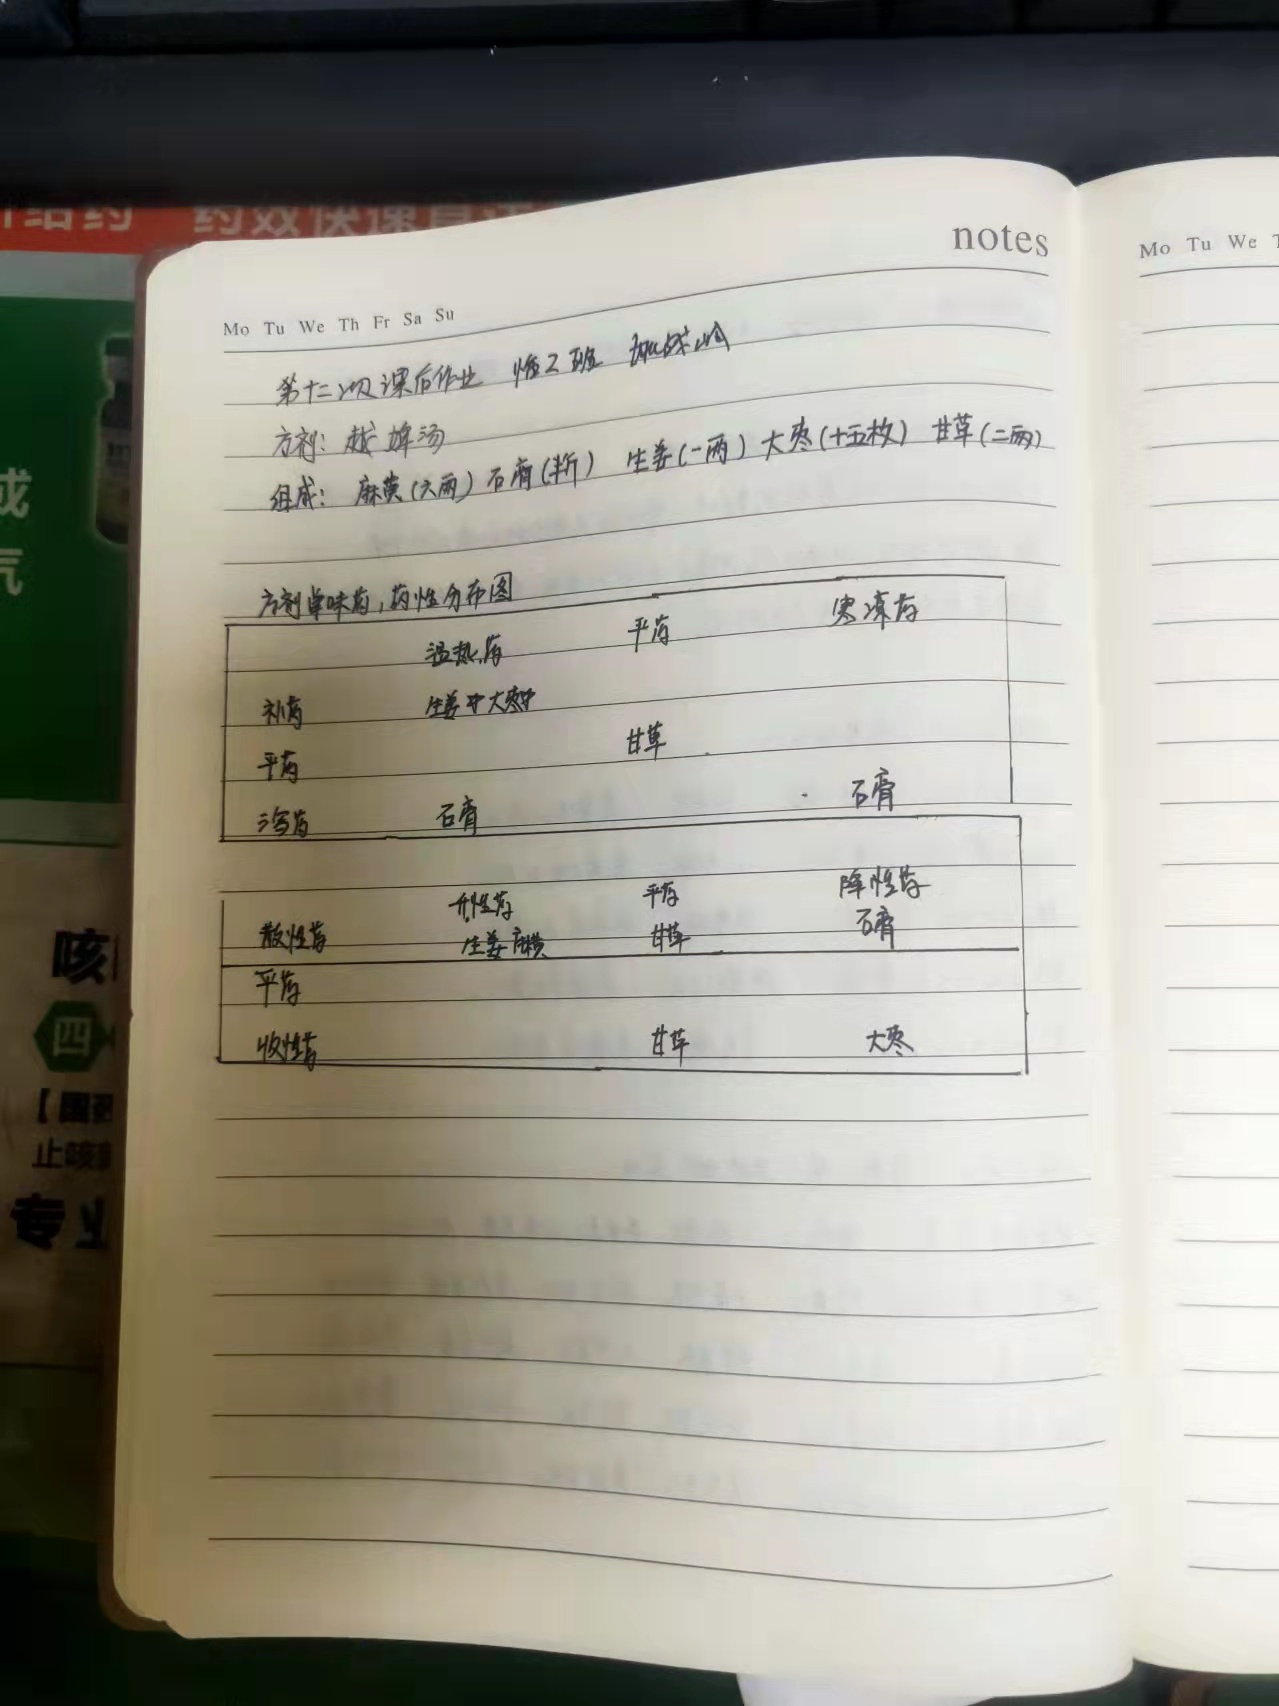 给药 药效快速直达
notes
Mo Tu We Th Fr Sa Su
Mo Tu We T
第十二次课后作业 悟2班
方剂：越婢汤
组成：麻黄(六两) 石膏(半斤) 生姜(一两) 大枣(十五枚) 甘草(二两)
方剂单味药,药性分布图
温热药 平药 寒凉药
补药 生姜 大枣
平药 甘草
泻药 石膏 石膏
升性药 平药 降性药
散性药 生姜 麻黄 甘草 石膏
平药
收性药 甘草 大枣
成
气
咳
四
【国药
止咳
专业